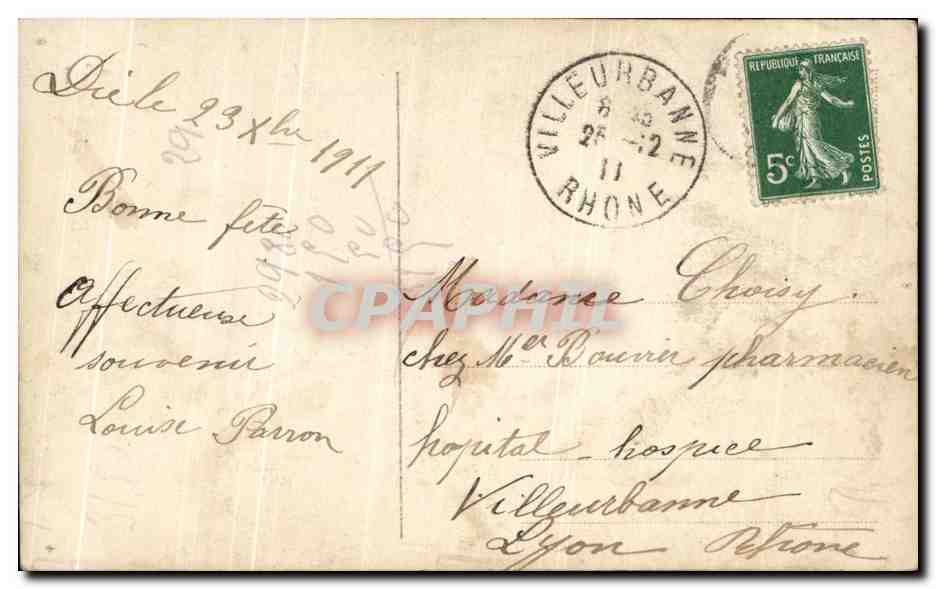 Die le 23 Xbre 1911
Bonne fête
affectueuse
souvenir
Louise Parron
VILLEURBANNE
25 -12
11
RHONE
REPUBLIQUE FRANÇAISE
5c
POSTES
Madame Choisy.
chez Mer Bouvier pharmacien
hopital - hospice
Villeurbanne
Lyon Rhône
CPAPHIL